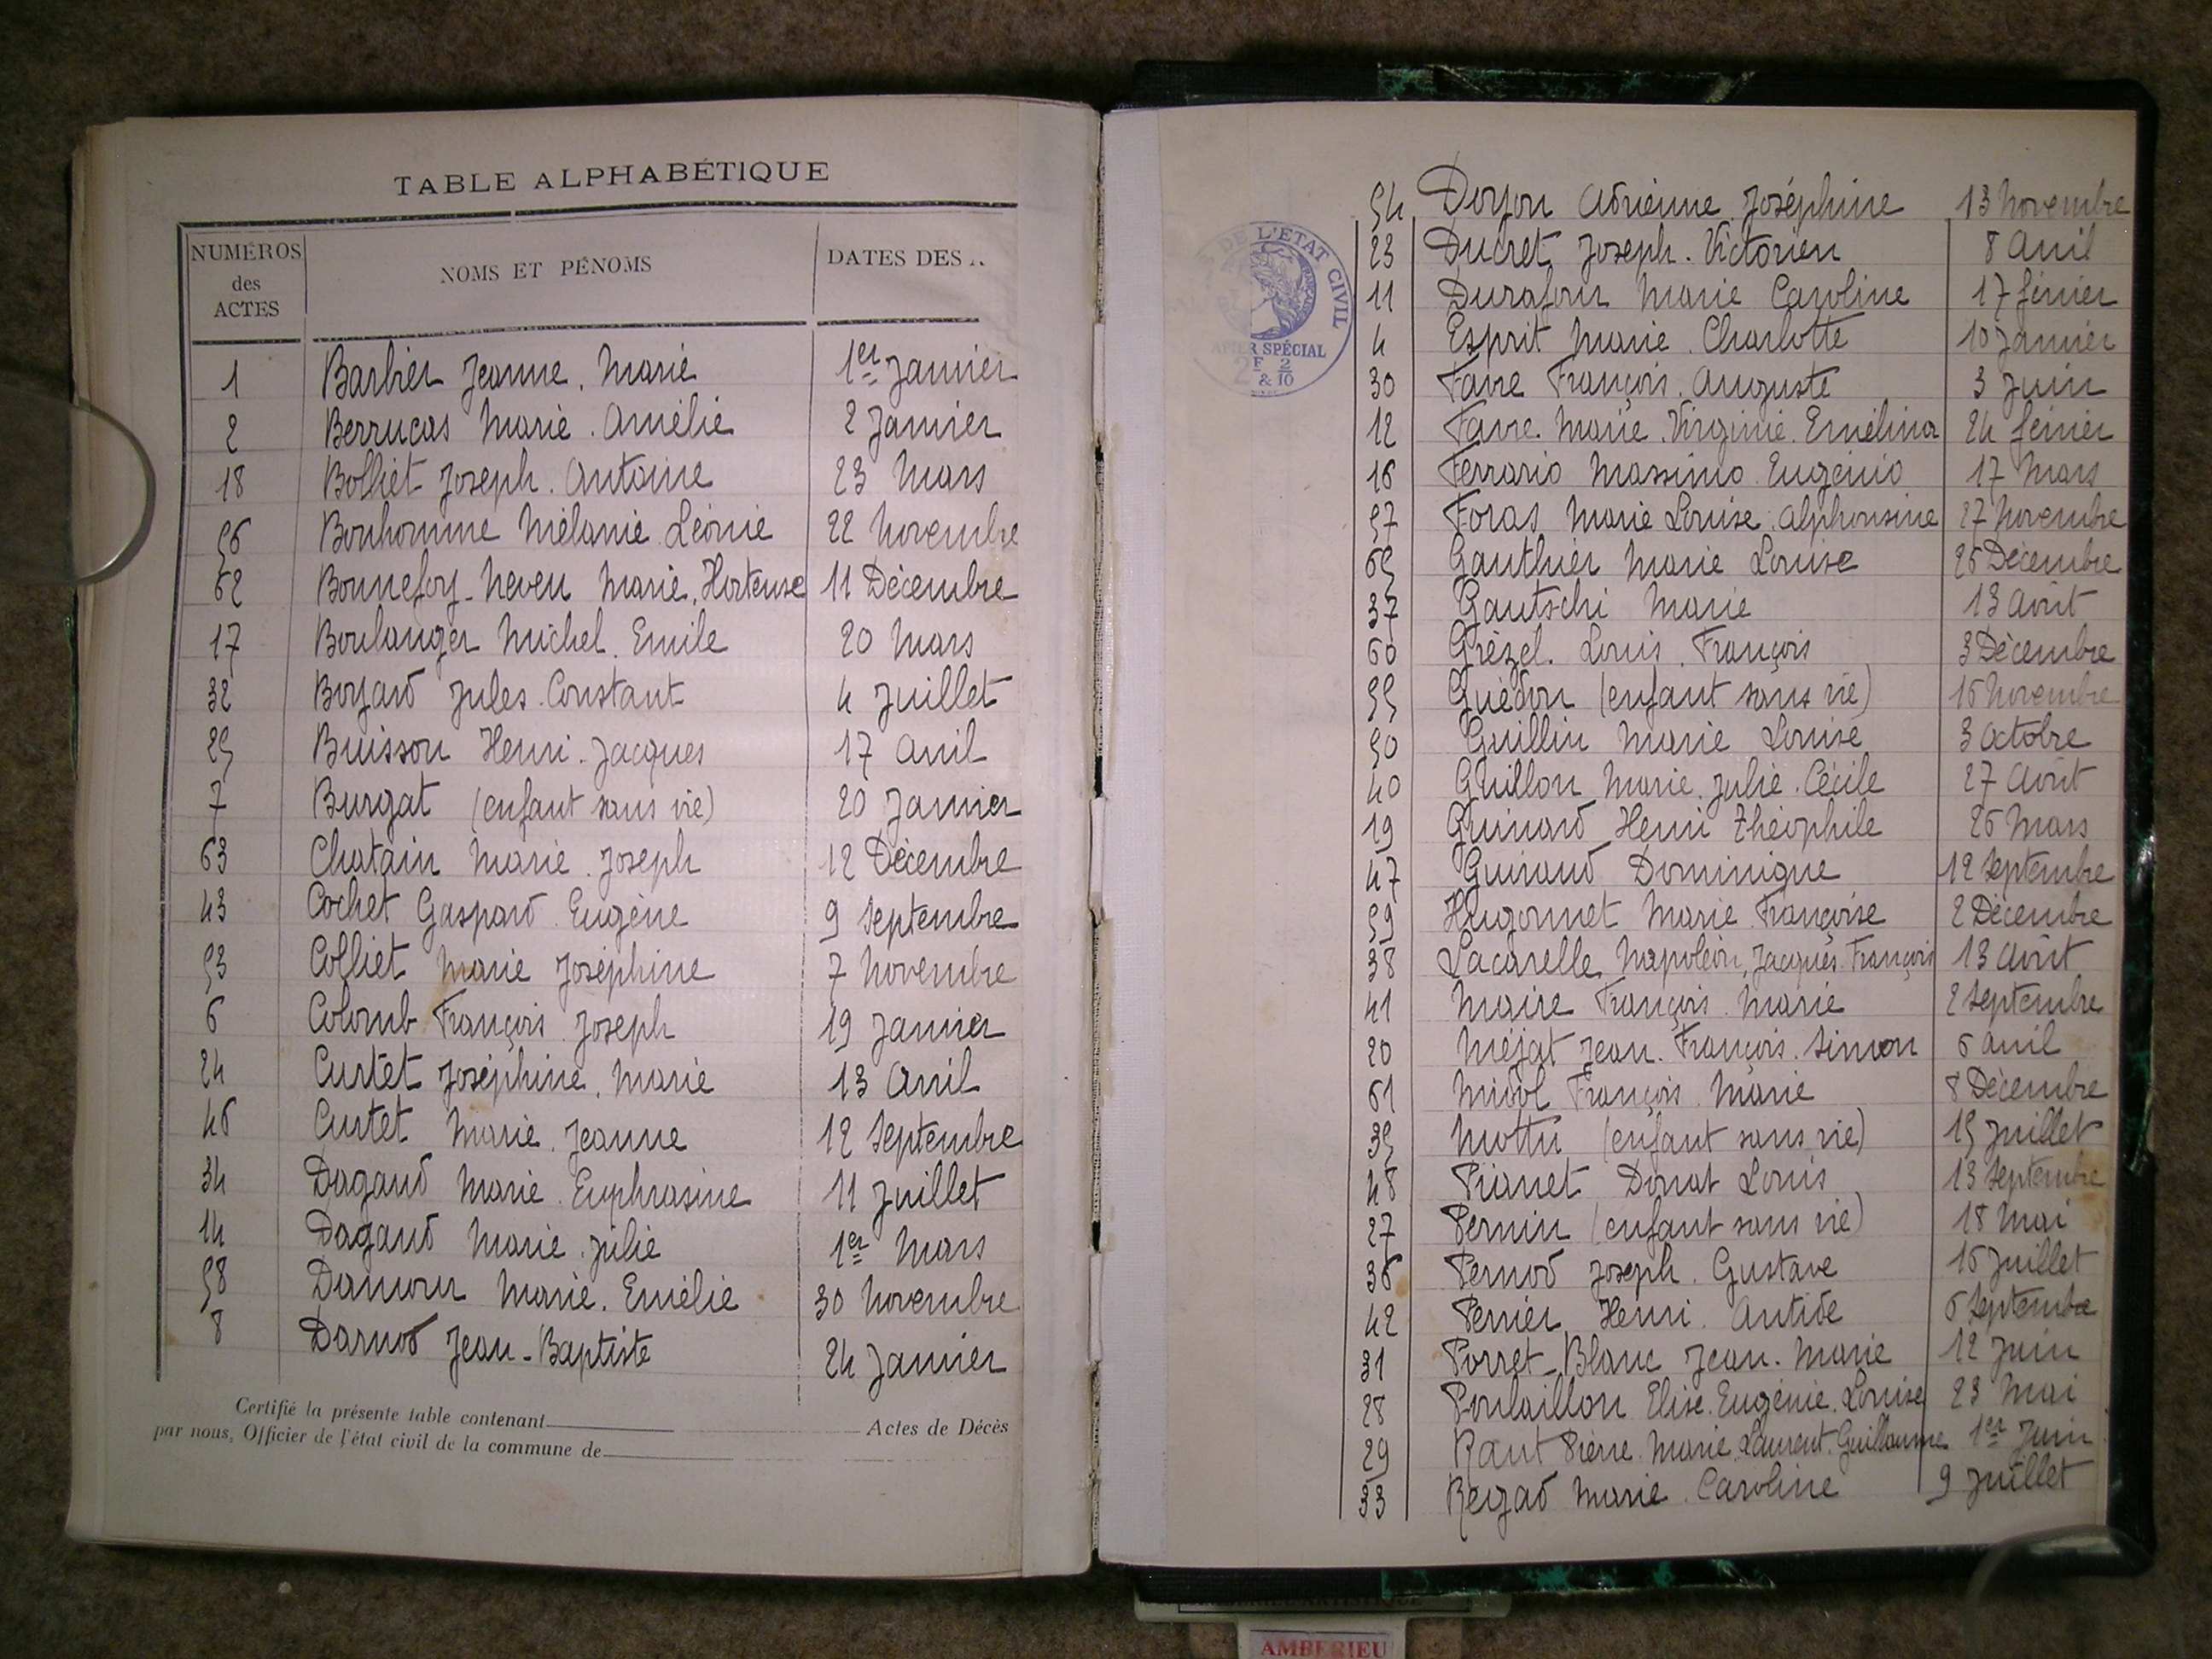 TABLE ALPHABÉTIQUE
NUMÉROS des ACTES NOMS ET PÉNOMS DATES DES
1 Barbier Jeanne. Marie 1er Janvier
2 Berrucas Marie. Amélie 2 Janvier
18 Bolliet Joseph. Antoine 23 Mars
56 Bonhomme Mélanie Léonie 22 Novembre
62 Bonnefoy-Neveu Marie. Hortense 11 Décembre
17 Boulanger Michel. Emile 20 Mars
32 Boyard Jules. Constant 4 Juillet
25 Buisson Henri. Jacques 17 Avril
7 Burgat (enfant sans vie) 20 Janvier
63 Chatain Marie. Joseph 12 Décembre
43 Cochet Gaspard. Eugène 9 Septembre
53 Colliet Marie Joséphine 7 Novembre
6 Colomb François Joseph 19 Janvier
24 Curtet Joséphine. Marie 13 Avril
46 Curtet Marie. Jeanne 12 Septembre
34 Dagaud Marie. Euphrasine 11 Juillet
14 Dagaud Marie. Julie 1er Mars
58 Damour Marie. Emélie 30 Novembre
8 Darnod Jean-Baptiste 24 Janvier
Certifié la présente table contenant Actes de Décès
par nous, Officier de l'état civil de la commune de
DE L'ETAT CIVIL
PAPIER SPÉCIAL
2F 2/10
54 Doyon Adrienne Joséphine 13 Novembre
23 Ducret Joseph. Victorien 8 Avril
11 Durafour Marie Caroline 17 février
4 Esprit Marie. Charlotte 10 Janvier
30 Favre François. Auguste 3 Juin
12 Favre. Marie. Virginie. Emélina 24 février
16 Ferrario Massimo Eugénio 17 Mars
57 Foras Marie Louise. Alphonsine 27 Novembre
65 Gauthier Marie Louise 25 Décembre
37 Gautschi Marie 13 Août
60 Grézel. Louis. François 3 Décembre
55 Guédon (enfant sans vie) 16 Novembre
50 Guillin Marie Louise 3 Octobre
40 Guillon Marie. Julie. Cécile 27 Août
19 Guinard Henri Théophile 26 Mars
47 Guiraud Dominique 12 Septembre
59 Hugonnet Marie Françoise 2 Décembre
38 Lacarelle Napoléon, Jacques. François 13 Août
41 Maire François. Marie 2 Septembre
20 Méjat Jean. François. Simon 6 Avril
61 Midol François Marie 8 Décembre
35 Mottu (enfant sans vie) 15 Juillet
48 Pianet Donat Louis 13 Septembre
27 Pernin (enfant sans vie) 18 Mai
36 Pernod Joseph. Gustave 16 Juillet
42 Perrier Henri. Antide 6 Septembre
31 Porret-Blanc Jean. Marie 12 Juin
28 Poulaillon Elise. Eugénie. Louise 23 Mai
29 Raut Pierre. Marie. Laurent. Guillaume 1er Juin
33 Reyad Marie. Caroline 9 Juillet
AMBERIEU